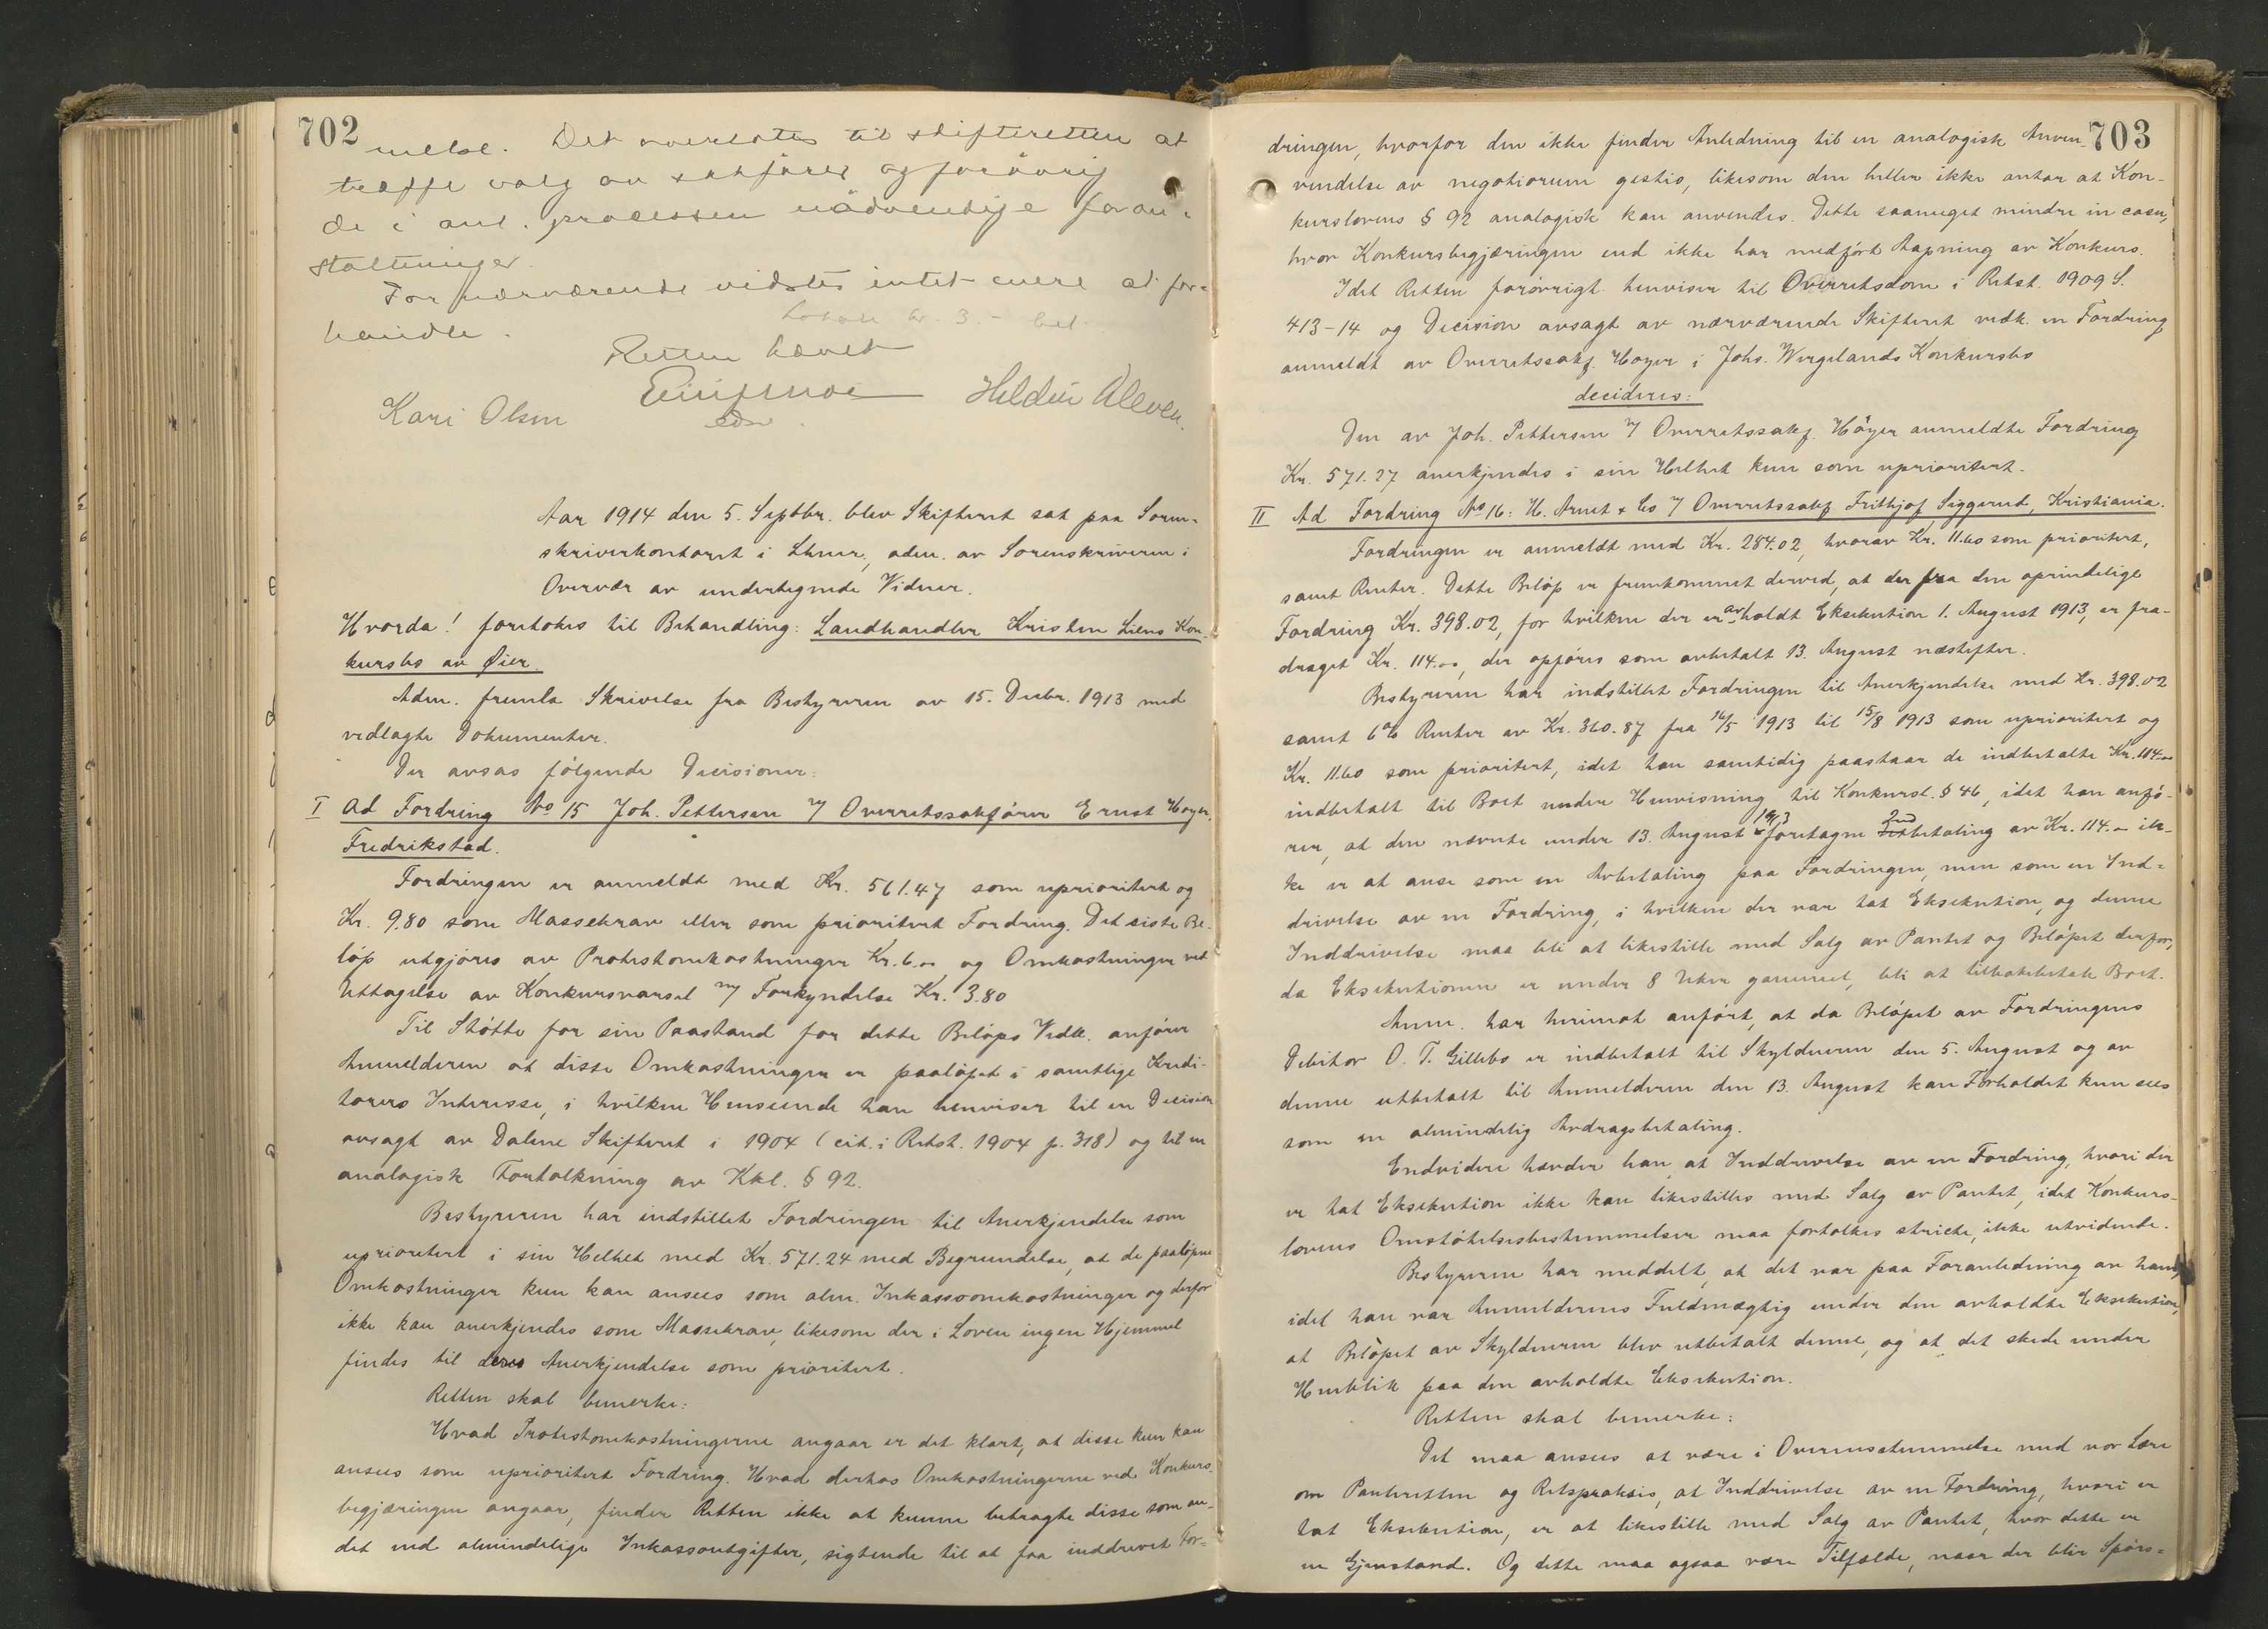 702
nelse. Det overlates til skifteretten at
træffe valg av sakfører og forøvrig
de i anl. processen nødvendige foran-
staltninger.
For nærværende vidstes intet mere at for-
handle.
Retten hævet
Kari Olsen
Aar 1914 den 5. Septbr. blev Skifteret sat paa Soren-
skriverkontoret i Lhmr., adm. av Sorenskriveren i
Overvær av undertegnede Vidner.
Hvorda! foretokes til Behandling: Landhandler Kristen Liens Kon-
kursbo av Øier.
Adm. fremla Skrivelse fra Bestyreren av 15. Decbr. 1913 med
vedlagte Dokumenter.
Der avsas følgende Decisioner:
I Ad Fordring No 15 Joh. Pettersen v/ Overretssakfører Ernst Høyer,
Fredrikstad.
Fordringen er anmeldt med Kr. 561.47 som uprioritert og
Kr. 9.80 som Massekrav eller som prioritert Fordring. Det siste Be-
løp utgjøres av Protestomkostninger Kr. 6.00 og Omkostninger ved
Uttagelse av Konkursvarsel m/ Forkyndelse Kr. 3.80
Til Støtte for sin Paastand for dette Beløps Vedk. anfører
Anmelderen at disse Omkostninger er paaløpet i samtlige Kredi-
torers Interesse, i hvilken Henseende han henviser til en Decision
avsagt av Dalene Skifteret i 1904 (cit. i Retst. 1904 p. 318) og til en
analogisk Fortolkning av Kkl. § 92.
Bestyreren har indstillet Fordringen til Anerkjendelse som
uprioritert i sin Helhet med Kr. 571.24 med Begrundelse, at de paaløpne
Omkostninger kun kan ansees som alm. Inkassoomkostninger og derfor
ikke kan anerkjendes som Massekrav, likesom der i Loven ingen Hjemmel
findes til deres Anerkjendelse som prioritert.
Retten skal bemerke:
Hvad Protestomkostningerne angaar er det klart, at disse kun kan
ansees som uprioritert Fordring. Hvad derhos Omkostningerne ved Konkurs-
begjæringen angaar, finder Retten ikke at kunne betragte disse som an-
det end almindelige Inkassoutgifter, sigtende til at faa inddrevet For-
703
dringen, hvorfor den ikke finder Anledning til en analogisk Anven-
vendelse av negotiorum gestio, likesom den heller ikke antar at Kon-
kurslovens § 92 analogisk kan anvendes. Dette saameget mindre in casu,
hvor Konkursbegjæringen end ikke har medført Aapning av Konkurs.
Idet Retten forøvrigt henviser til Overretsdom i Retst. 1909 S.
413-14 og Decision avsagt av nærværende Skifteret vedk. en Fordring
anmeldt av Overretssakf. Høyer i Johs. Wergelands Konkursbo
decideres:
Den av Joh. Pettersen v/ Overretssakf. Höyer anmeldte Fordring
Kr. 571.27 anerkjendes i sin Helhet kun som uprioritert.
II Ad Fordring No 16: H. Arnet & Co v/ Overretssakf. Frithjof Siggerud, Kristiania.
Fordringen er anmeldt med Kr. 284.02, hvorav Kr. 11.60 som prioritert,
samt Renter. Dette Beløp er fremkommet derved, at der fra den oprindelige
Fordring Kr. 398.02, for hvilken der er avholdt Eksekution 1. August 1913, er fra-
draget Kr. 114.00, der opføres som avbetalt 13. August næstefter.
Bestyreren har indstillet Fordringen til Anerkjendelse med Kr. 398.02
samt 6 % Renter av Kr. 360.87 fra 16/5 1913 til 15/8 1913 som uprioritert og
Kr. 11.60 som prioritert, idet han samtidig paastaar de indbetalte Kr. 114.00
indbetalt til Boet under Henvisning til Konkursl. § 46, idet han anfø-
rer, at den nævnte under 13. August 1913 foretagne Indbetaling av Kr. 114.- ik-
ke er at anse som en Avbetaling paa Fordringen, men som en Ind-
drivelse av en Fordring, i hvilken der var tat Eksekution, og denne
Inddrivelse maa bli at likestille med Salg av Pantet og Beløpet derfor,
da Eksekutionen er under 8 Uker gammel, bli at tilbakebetale Boet.
Anm. har herimot anført, at da Beløpet av Fordringens
Debitor O. T. Gillebo er indbetalt til Skyldneren den 5. August og av
denne utbetalt til Anmelderen den 13. August kan Forholdet kun sees
som en almindelig Avdragsbetaling.
Endvidere hævder han at Inddrivelse av en Fordring, hvori der
er tat Eksekution ikke kan likestilles med Salg av Pantet, idet Konkurs-
lovens Omstøtelsesbestemmelser maa fortolkes stricte, ikke utvidende.
Bestyreren har meddelt, at det var paa Foranledning av ham,
idet han var Anmelderens Fuldmægtig under den avholdte Eksekution,
at Beløpet av Skyldneren blev utbetalt denne, og at det skede under
Henblik paa den avholdte Eksekution.
Retten skal bemerke:
Det maa ansees at være i Overensstemmelse med vor Lære
om Panteretten og Retspraksis, at Inddrivelse av en Fordring, hvori er
tat Eksekution, er at likestille med Salg av Pantet, hvor dette er
en Gjenstand. Og dette maa ogsaa være Tilfælde, naar der blir Spørs-